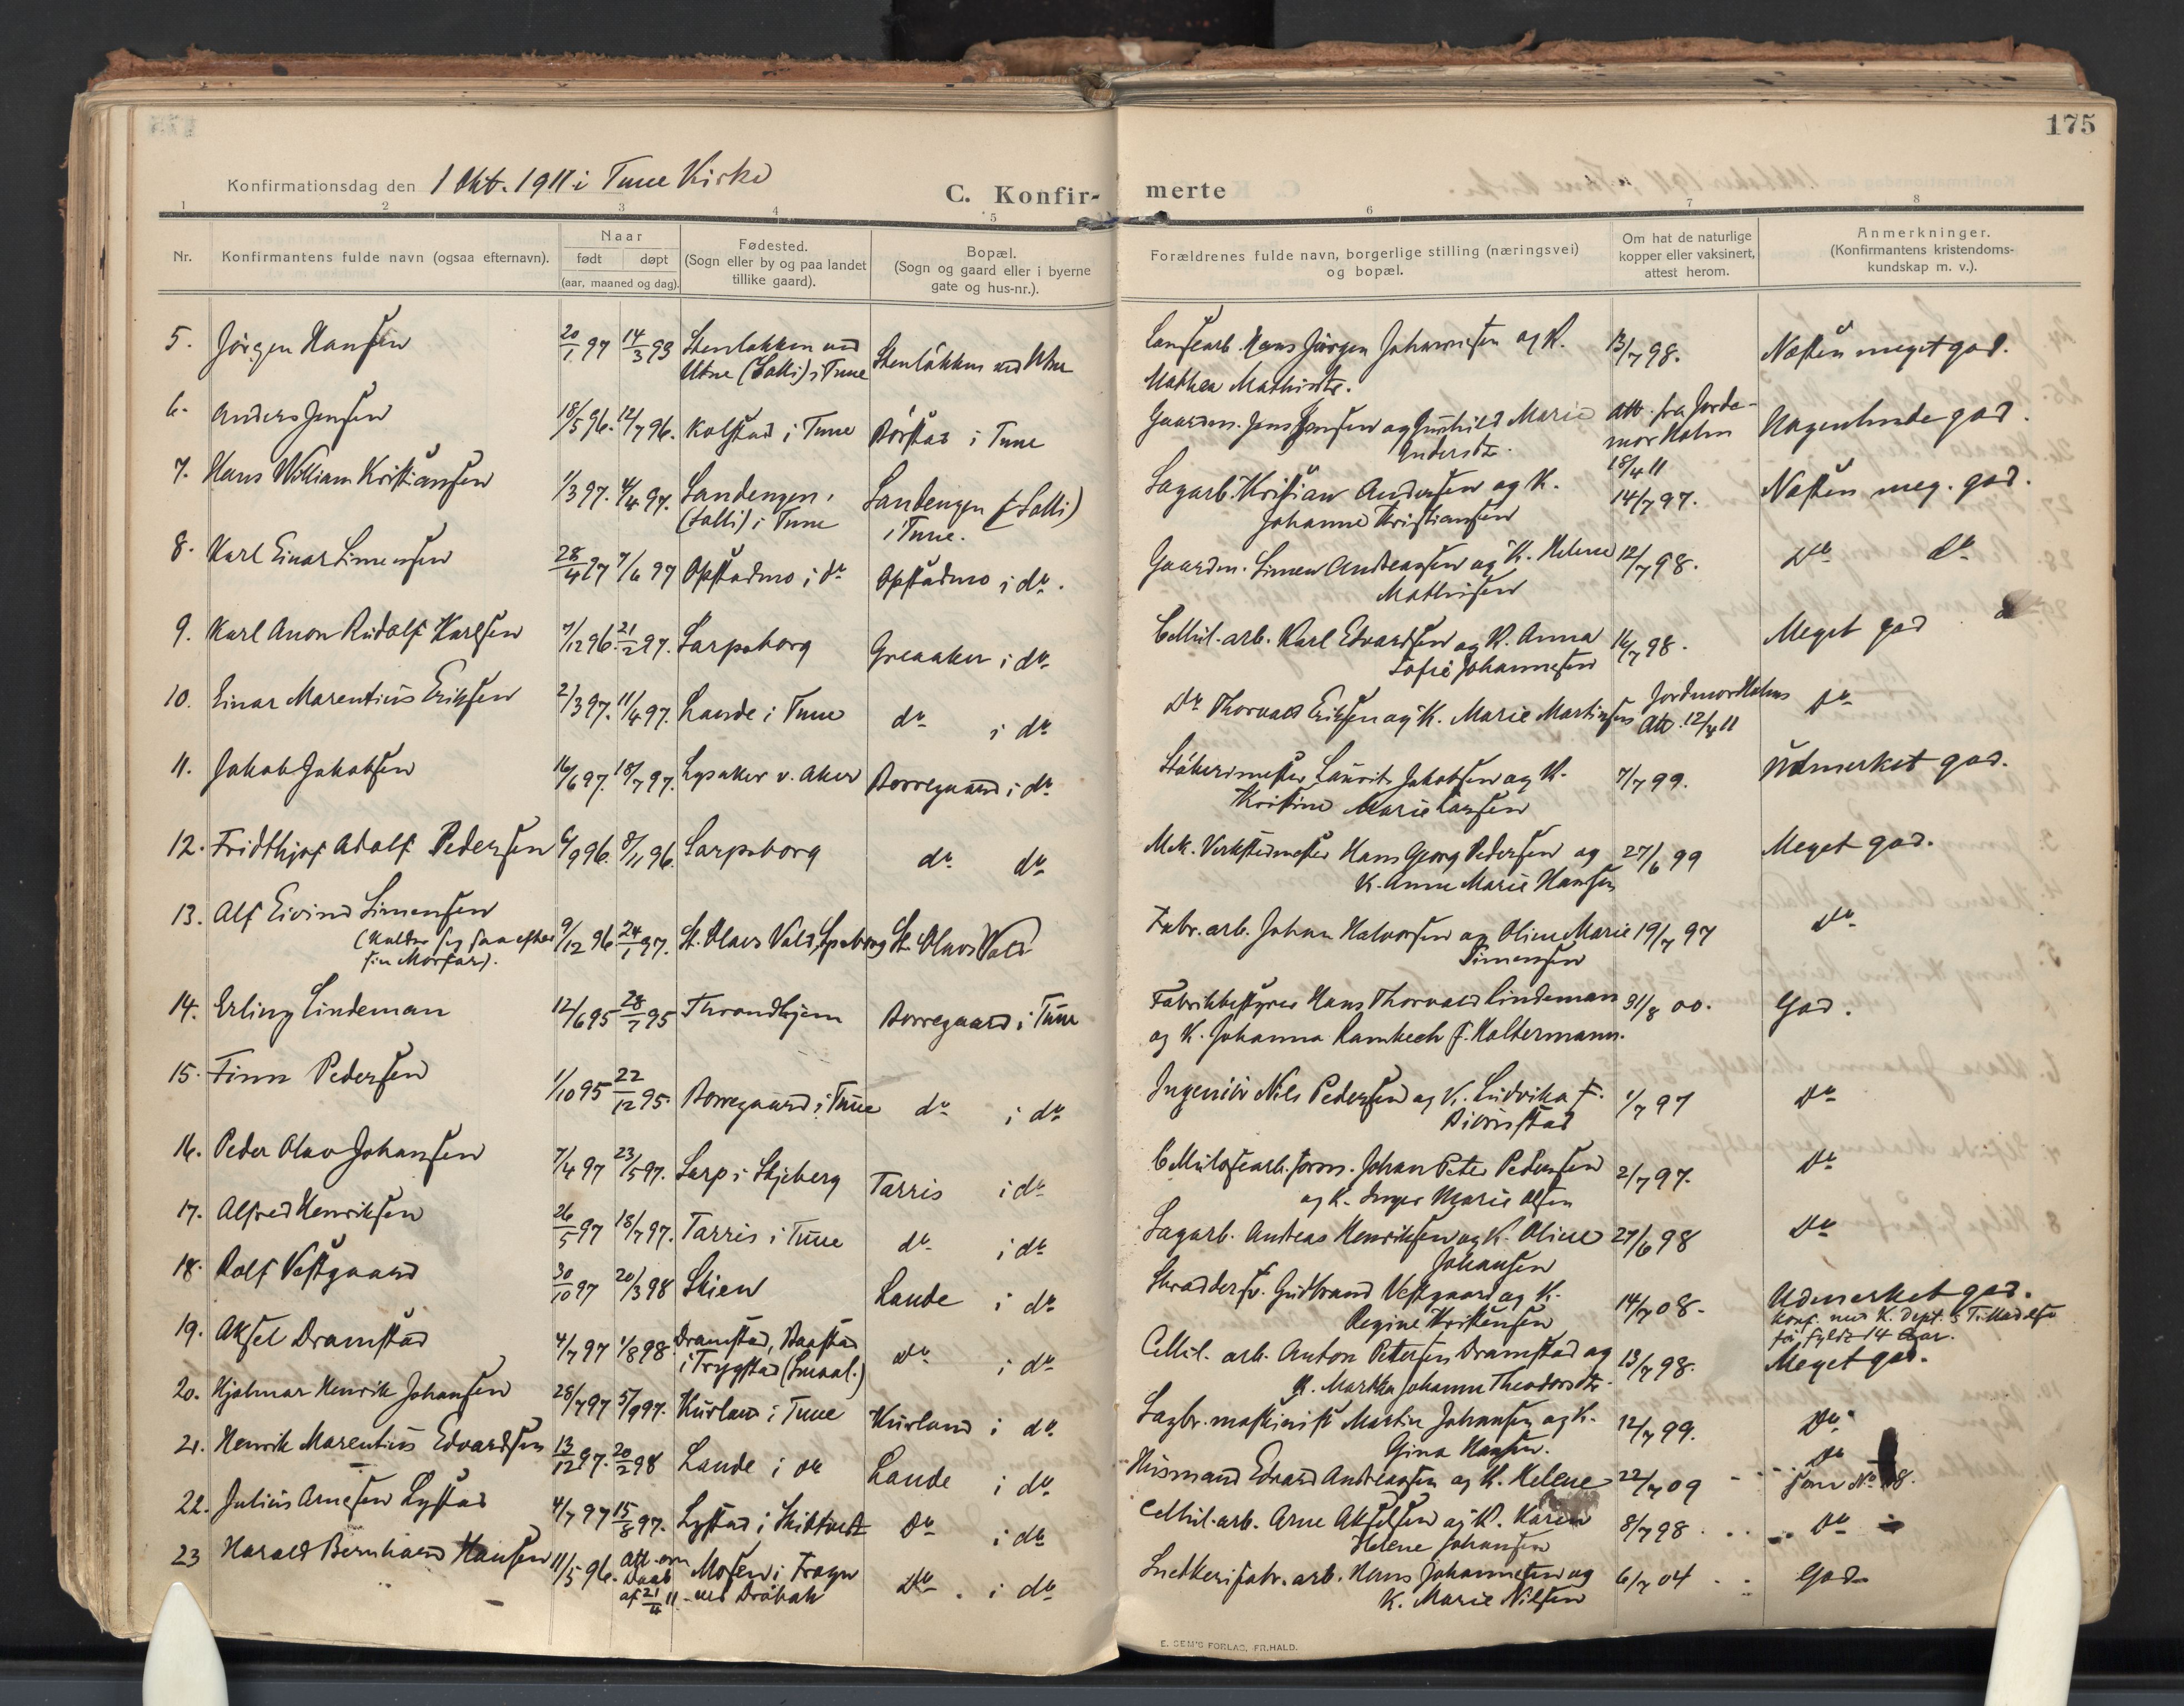 175
Konfirmationsdag den 1 Okt. 1911 i Tune Kirke
C. Konfir- merte
1 2 3 4 5 6 7 8
Nr. Konfirmantens fulde navn (ogsaa efternavn). Naar født døpt (aar, maaned og dag). Fødested. (Sogn eller by og paa landet tillike gaard). Bopæl. (Sogn og gaard eller i byerne gate og hus-nr.). Forældrenes fulde navn, borgerlige stilling (næringsvei) og bopæl. Om hat de naturlige kopper eller vaksinert, attest herom. Anmerkninger. (Konfirmantens kristendoms-kundskap m. v.).
5. Jörgen Hansen 20/1 97 14/3 93 Stenløkken ved Stenløkken ved Utne Hans Jörgen Johannesen og K. 13/7 98. Næsten meget god.
Utne (Solli) i Tune Mathea Mathisdtr.
6. Anders Jensen 18/5 96. 12/7 96. Kolstad i Tune Börstad i Tune Gaardm. Jens Jensen og Gunhild Marie Att. fra Jorde-
Andersdtr. mor Holm god.
18/4 11
7. Hans William Kristiansen 1/3 97. 4/4 97. Sandengen, Sandengen (Solli) Sagarb. Kristian Andersen og K. 14/7 97. Næsten meg. god.
(Solli) i Tune i Tune. Johanne Kristiansen
8. Karl Einar Simensen 28/4 97 7/6 97 Opstadmo i do Opstadmo i do. Gaardm. Simen Andreassen og K. Helene 12/7 98. Do do
Mathisen
9. Karl Anon Rudolf Karlsen 7/12 96. 21/2 97. Sarpsborg Greaaker i do Cellul.-arb. Karl Edvardsen og K. Anna 16/7 98. Meget god
Sofie Johannesen
10. Einar Marentius Eriksen 2/3 97. 11/4 97. Lande i Tune do i do Do Thorvald Eriksen og K. Marie Martinsen Jordmor Holms Do
Att. 12/4 11
11. Jakob Jakobsen 16/6 97. 18/7 97. Lysaker v. Aker Borregaard i do Støkerimester Laurits Jakobsen og K. 7/7 99. Udmerket god.
Kristine Marie Larsen
12. Fridthjof Adolf Pedersen 6/9 96. 8/11 96. Sarpsborg do do Mek. Verkstedmester Hans Georg Pedersen og 27/6 99 Meget god.
K. Anne Marie Hansen
13. Alf Eivind Simensen
(kalder sig saa efter 9/12 96 24/1 97. St. Olavs Vold, Spsborg St. Olavs Vold Fabr. arb. Johan Halvorsen og Oline Marie 19/7 97 Do
sin Morfar). Simensen
14. Erling Lindeman 12/6 95 28/7 95 Throndhjem Borregaard i Tune Fabrikbestyrer Hans Thorvald Lindeman 31/8 00. God.
og K. Johanna Rambech f. Haltermann.
15. Finn Pedersen 1/10 95 22/12 95. Borregaard i Tune do i do Ingeniör Nils Pedersen og K. Ludvika f. 1/7 97 Do
16. Peder Olav Johansen 7/4 97 23/5 97. Sarp i Skjeberg Tarris i do Johan Peter Pedersen 2/7 97. Do
og K. Inger Marie Olsen
17. Alfred Henriksen 26/5 97 18/7 97. Tarris i Tune do i do Sagarb. Andreas Henriksen og K. Oline 27/6 98 Do
Johansen
18. Rolf Vestgaard 30/10 97 20/3 98 Skien Lande i do Skrædder Gudbrand Vestgaard og K. 14/7 08. Udmerket god.
Regine Kristensen Konf. med K. Dept.s Tilladelse
før fyldt 14 Aar.
19. Aksel Dramstad 4/7 97 1/8 98. Dramstad, Baastad Do i do Cellul. arb. Anton Petersen Dramstad og 13/7 98. Meget god.
i Trygstad (Smaal.) K. Martha Johanne Theodorsdtr.
20. Hjalmar Henrik Johansen 28/7 97 5/9 97. Kurland i Tune Kurland i do Sagbr. maskinist Martin Johansen og K. 12/7 99. Do
Gina Hansen.
21. Henrik Marentius Edvardsen 13/12 97. 20/2 98 Lande i do Lande i do Husmand Edvard Andreassen og K. Helene 22/7 09 Do
som No 18.
22. Julius Arnesen Lystad 4/7 97 15/8 97. Lystad i Skiptvedt Do i do Cellul.-arb. Arne Akselsen og K. Karen 8/7 98 Do
Helene Johansen
23 Harald Bernhard Hansen 11/5 96. Att. om Mosen i Frogn Do i do Snedkerifabr. arb. Hans Johannesen og 6/7 04 God
Daab af 21/4 11 ved Dröbak K. Marie Nilsen
E. SEM'S FORLAG, FR.HALD.